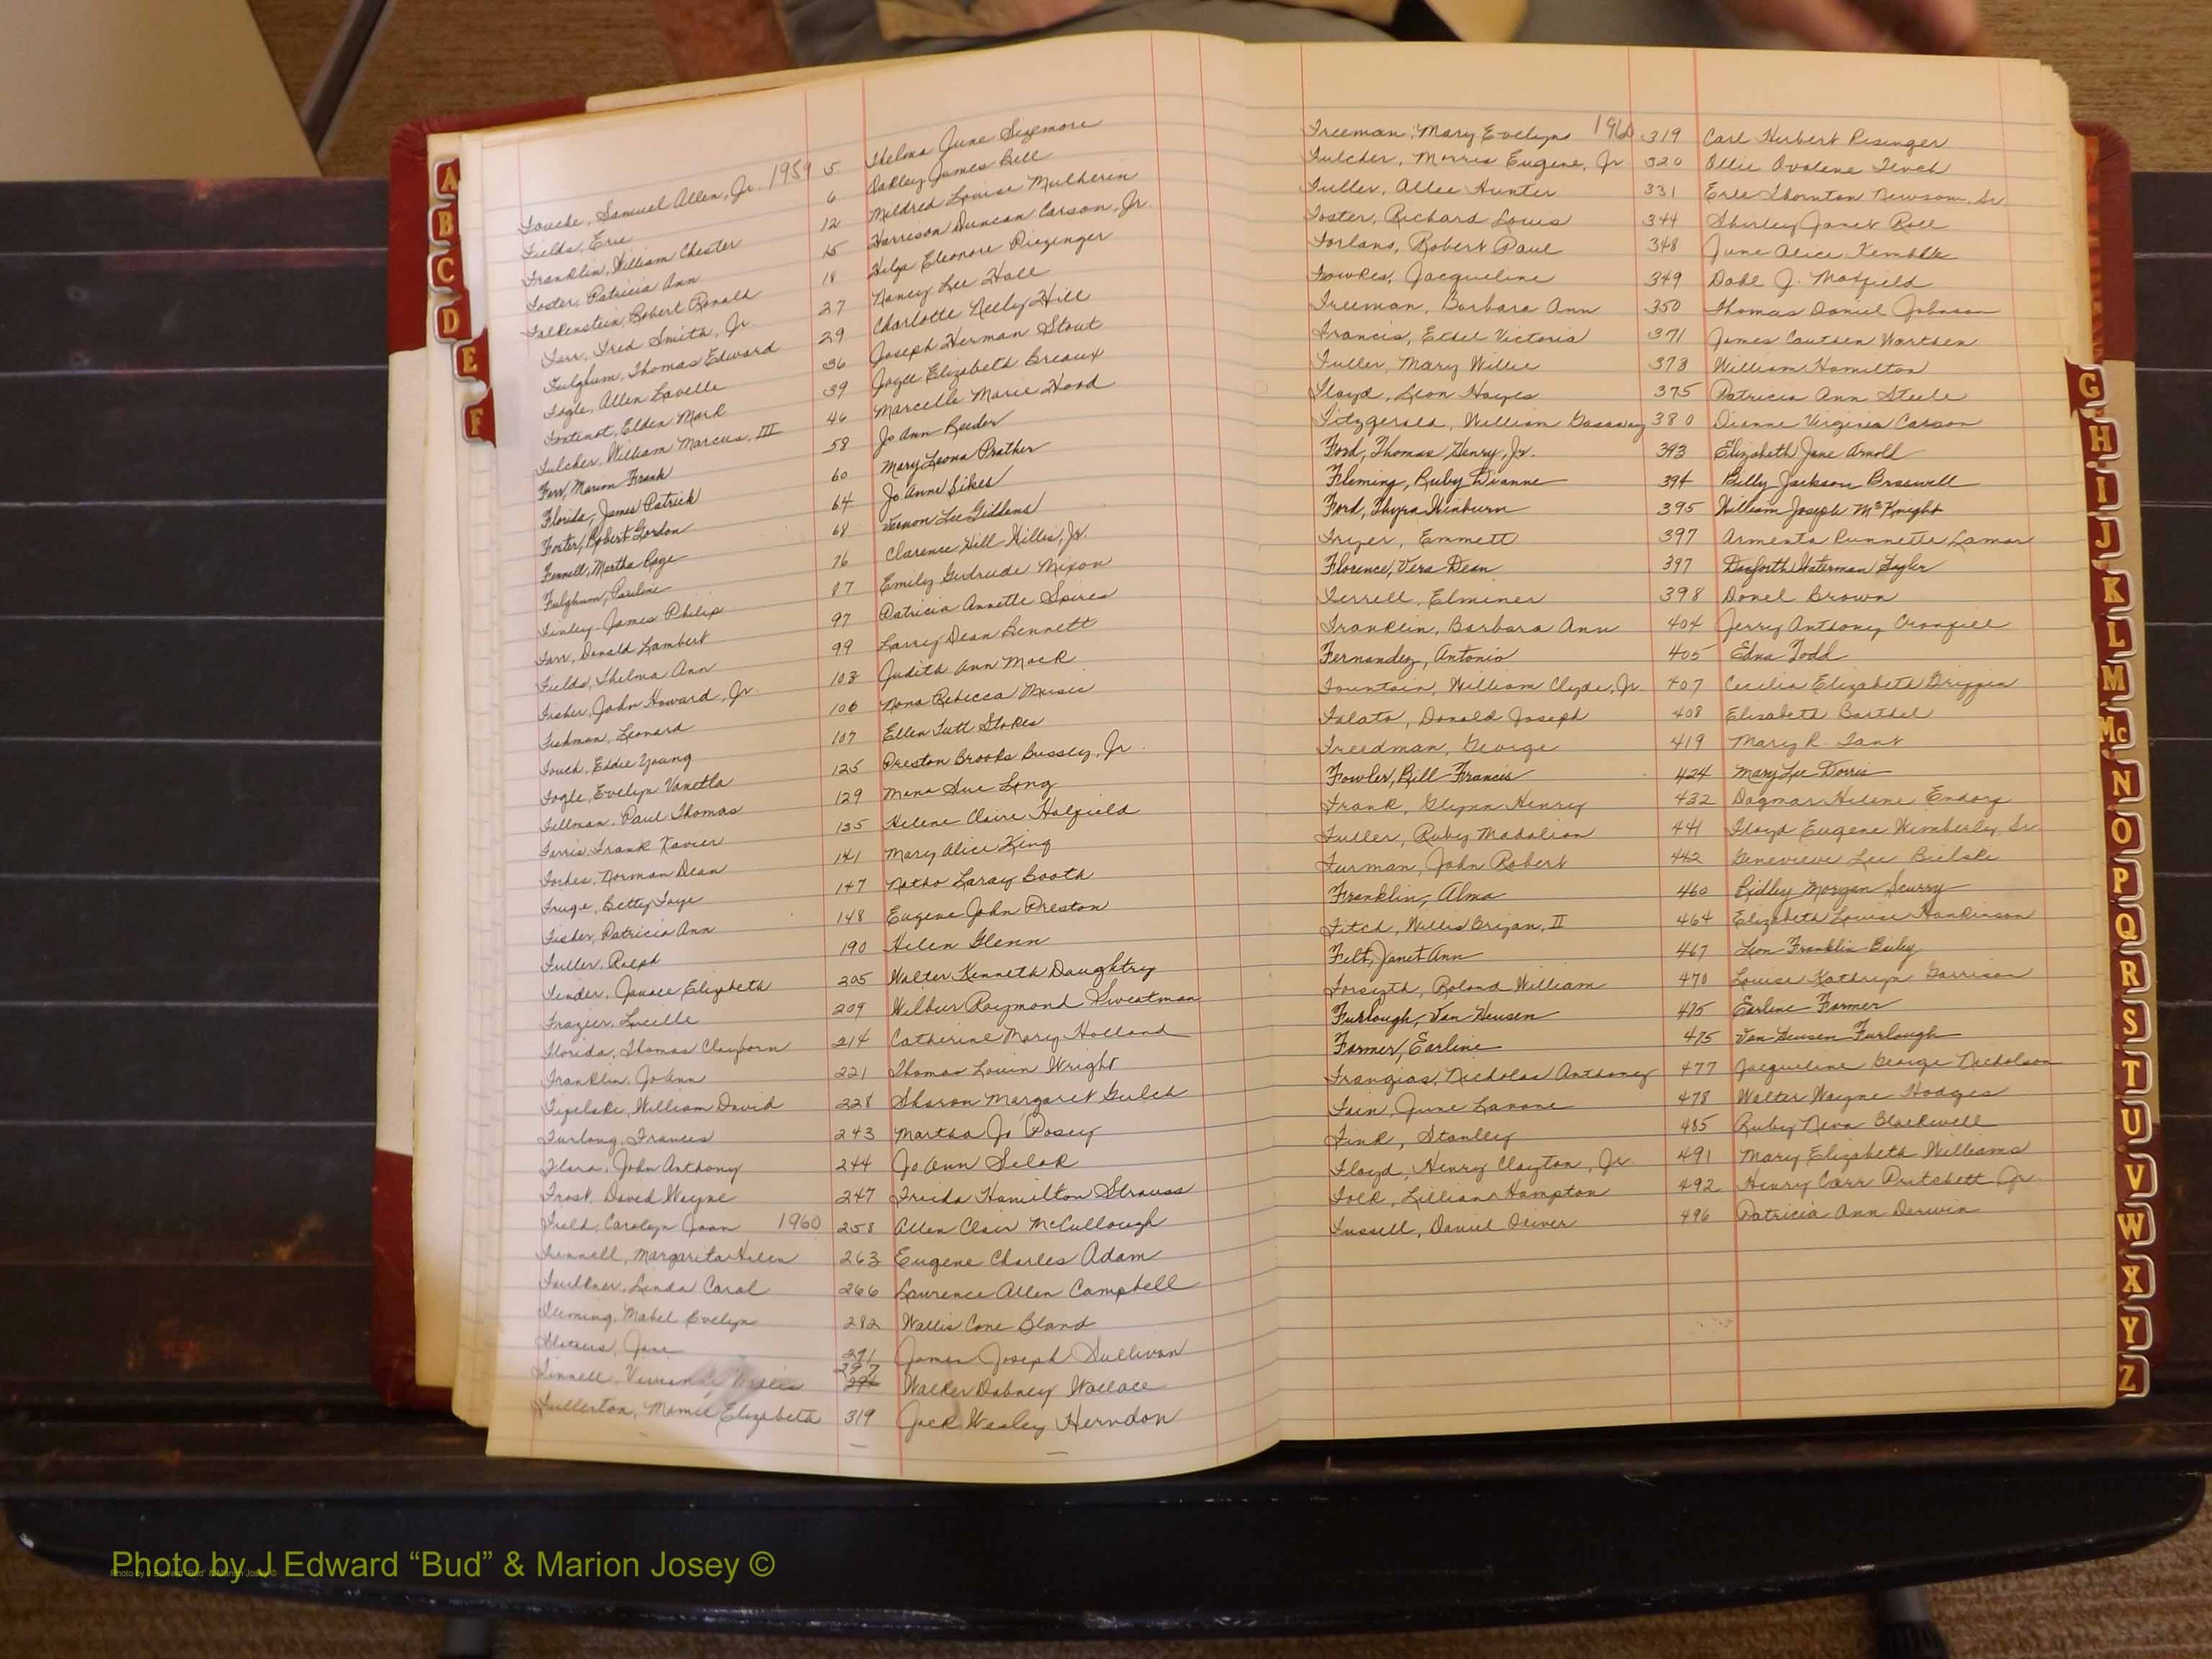 Fouche, Samuel Allen, Jr. 1959 5 Thelma June Sizemore
Fields, Eric 6 Oakley James Bell
Franklin, William Chester 12 Mildred Louise Mulherin
Foster, Patricia Ann 15 Harrison Duncan Carson, Jr.
Falkenstein, Robert Ronald 18 Helga Eleonore Piezinger
Farr, Fred Smith, Jr. 27 Nancy Lee Hall
Fulghum, Thomas Edward 29 Charlotte Neely Hill
Fogle, Allen Lavelle 36 Joseph Herman Stout
Fontenot, Elden Mark 39 Joyce Elizabeth Breaux
Fulcher, William Marcus, III 46 Marcelle Marie Hood
Farr, Marion Frank 58 Jo Ann Reeder
Florida, James Patrick 60 Mary Leona Prather
Foster, Robert Gordon 64 Jo Anne Sikes
Fennell, Martha Raye 68 Vernon Lee Giddens
Fulghum, Pauline 76 Clarence Hill Hillis, Jr.
Finley, James Philip 87 Emily Gertrude Nixon
Farr, Donald Lambert 97 Patricia Annette Spires
Fields, Thelma Ann 99 Larry Dean Bennett
Fisher, John Howard, Jr. 103 Judith Ann Mack
Fishman, Leonard 106 Nona Rebecca Music
Fouch, Eddie Young 107 Ellen Tutt Stokes
Fogle, Evelyn Vanetta 125 Preston Brooks Bussey, Jr.
Fillman, Paul Thomas 129 Mona Sue Long
Farris, Frank Xavier 135 Helene Claire Halfield
Forbes, Norman Dean 141 Mary Alice King
Fruge, Betty Faye 147 Natho Laray Booth
Fisher, Patricia Ann 148 Eugene John Preston
Fuller, Ralph 190 Helen Glenn
Fender, Janace Elizabeth 205 Walter Kenneth Daughtry
Frazier, Lucille 209 Wilbur Raymond Sweatman
Florida, Thomas Clayborn 214 Catherine Mary Holland
Franklin, Jo Ann 221 Thomas Louin Wright
Figelski, William David 228 Sharon Margaret Gulch
Furlong, Francis 243 Martha Jo Posey
Flora, John Anthony 244 Jo Ann Selak
Frost, David Wayne 247 Frieda Hamilton Strauss
Field, Carolyn Joan 1960 258 Allen Clair McCullough
Fennell, Margarita Helen 263 Eugene Charles Adam
Faulkner, Linda Carol 266 Laurence Allen Campbell
Fleming, Mabel Evelyn 282 Wallis Cone Bland
Jane 291 James Joseph Sullivan
297
Finnell, 294 Walker Dabney Wallace
Fullerton, Mamie Elizabeth 319 Jack Wesley Herndon
Freeman, Mary Evelyn 1960 319 Carl Herbert Risinger
Fulcher, Morris Eugene, Jr. 320 Ollie Ovalene Tench
Fuller, Allee Hunter 331 Erle Thornton Newsom, Sr.
Foster, Richard Louis 344 Shirley Janet Roll
Forlano, Robert Paul 348 June Alice Kemble
Fowkes, Jacqueline 349 Dahl J. Matfield
Freeman, Barbara Ann 350 Thomas Daniel Johnson
Francis, Ethel Victoria 371 James Cauthen Warthen
Fuller, Mary Willie 373 William Hamilton
Floyd, Leon Hayes 375 Patricia Ann Steele
Fitzgerald, William Gassaway 380 Dianne Virginia Carson
Ford, Thomas Henry, Jr. 393 Elizabeth Jane Arnold
Fleming, Ruby Dianne 394 Billy Jackson Braswell
Ford, Thyra Winburn 395 William Joseph McKnight
Fryer, Emmett 397 Armenta Punnette Lamar
Florence, Vera Dean 397 Danforth Waterman Sayler
Ferrell, Elminer 398 Donel Brown
Franklin, Barbara Ann 404 Jerry Anthony Cranfill
Fernandez, Antonio 405 Edna Todd
Fountain, William Clyde, Jr. 407 Cecilia Elizabeth Griffin
Falato, Donald Joseph 408 Elizabeth Barthel
Freedman, George 419 Mary R. Tant
Fowler, Bill Francis 424 Mary Lee Dorris
Frank, Glynn Henry 432 Dagmar Helene Endorf
Fuller, Ruby Madalion 441 Floyd Eugene Wimberly, Sr.
Furman, John Robert 442 Genevieve Lee Bielski
Franklin, Alma 460 Ridley Morgan Scurry
Fitch, Willis Bryan, II 464 Elizabeth Louise Hankinson
Felt, Janet Ann 467 Leon Franklin Baley
Forsyth, Roland William 470 Louise Kathryn Garrison
Furlough, Van Heusen 475 Earline Farmer
Farmer, Earline 475 Van Heusen Furlough
Frangias, Nicholas Anthony 477 Jacqueline George Nicholson
Fain, June Lanane 478 Walter Wayne Hodges
Fink, Stanley 485 Ruby Neva Blackwell
Floyd, Henry Clayton, Jr. 491 Mary Elizabeth Williams
Folk, Lillian Hampton 492 Henry Carr Pritchett Jr.
Fussell, Daniel Oliver 496 Patricia Ann Derwin
A
B
C
D
E
F
G
H
I
J
K
L
M
Mc
N
O
P
Q
R
S
T
U
V
W
X
Y
Z
Photo by J Edward “Bud” & Marion Josey ©
Photo by J Edward “Bud” & Marion Josey ©